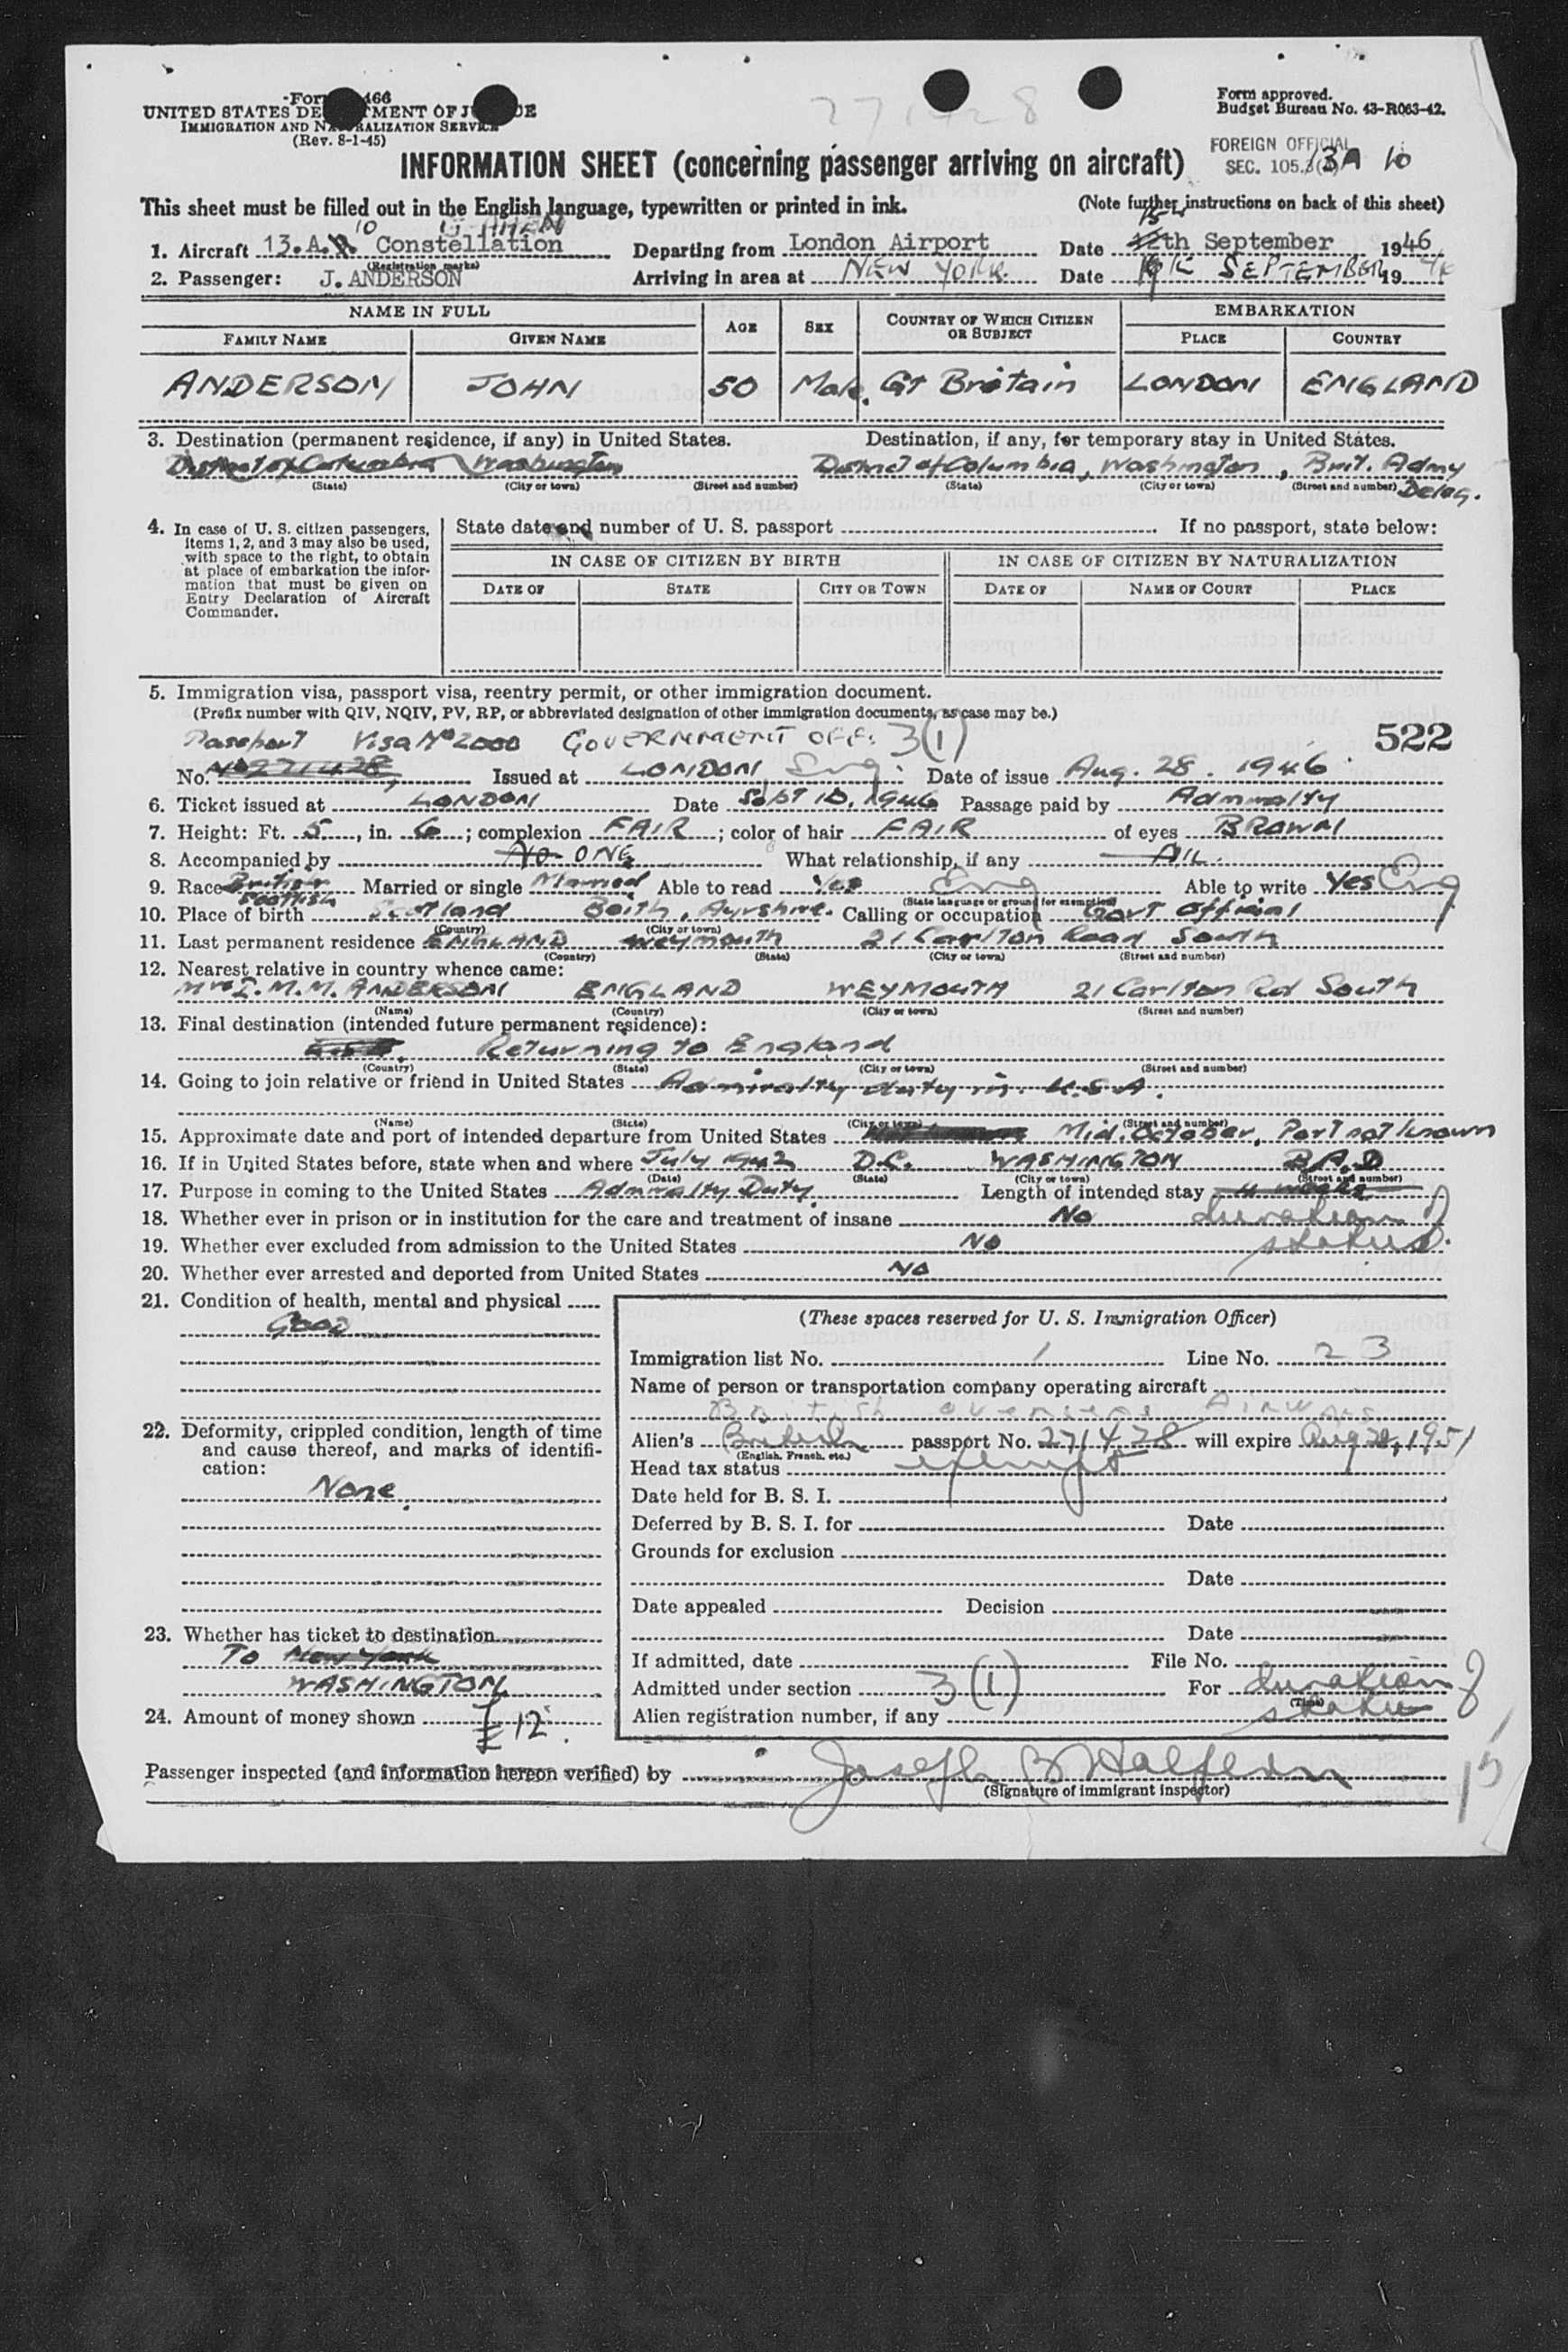 Form 466
UNITED STATES DEPARTMENT OF JUSTICE
IMMIGRATION AND NATURALIZATION SERVICE
(Rev. 8-1-45)
271428
Form approved.
Budget Bureau No. 43-R063-42.
FOREIGN OFFICIAL
SEC. 105.3(
13A 10
INFORMATION SHEET (concerning passenger arriving on aircraft)
This sheet must be filled out in the English language, typewritten or printed in ink. (Note further instructions on back of this sheet)
1. Aircraft 13.A. 10 Constellation G-AHEN Departing from London Airport Date 15 12th September 1946
(Registration marks)
2. Passenger: J. ANDERSON Arriving in area at NEW YORK. Date SEPTEMBER 19 46
NAME IN FULL AGE SEX COUNTRY OF WHICH CITIZEN OR SUBJECT EMBARKATION
FAMILY NAME GIVEN NAME PLACE COUNTRY
ANDERSON JOHN 50 Male. Gt Britain LONDON ENGLAND
3. Destination (permanent residence, if any) in United States. Destination, if any, for temporary stay in United States.
District of Columbia Washington District of Columbia, Washington, Brit. Admy Deleg.
(State) (City or town) (Street and number) (State) (City or town) (Street and number)
4. In case of U. S. citizen passengers, items 1, 2, and 3 may also be used, with space to the right, to obtain at place of embarkation the information that must be given on Entry Declaration of Aircraft Commander.
State date and number of U. S. passport If no passport, state below:
IN CASE OF CITIZEN BY BIRTH IN CASE OF CITIZEN BY NATURALIZATION
DATE OF STATE CITY OR TOWN DATE OF NAME OF COURT PLACE
5. Immigration visa, passport visa, reentry permit, or other immigration document.
(Prefix number with QIV, NQIV, PV, RP, or abbreviated designation of other immigration documents, as case may be.)
522
Passport Visa No 2000 GOVERNMENT OFF. 3(1)
No. No 271428, Issued at LONDON, Eng. Date of issue Aug. 28. 1946
6. Ticket issued at LONDON Date Sept 10, 1946 Passage paid by Admiralty
7. Height: Ft. 5, in. 6; complexion FAIR; color of hair FAIR of eyes BROWN
8. Accompanied by NO ONE What relationship, if any NIL.
9. Race British Scottish Married or single Married Able to read Yes Eng Able to write Yes Eng
(State language or ground for exemption)
10. Place of birth Scotland Beith, Ayrshire. Calling or occupation Govt official
(Country) (City or town)
11. Last permanent residence ENGLAND Weymouth 21 Carlton Road South
(Country) (State) (City or town) (Street and number)
12. Nearest relative in country whence came:
Mrs I.M.M. ANDERSON ENGLAND WEYMOUTH 21 Carlton Rd South
(Name) (Country) (City or town) (Street and number)
13. Final destination (intended future permanent residence):
Returning to England
(Country) (State) (City or town) (Street and number)
14. Going to join relative or friend in United States Admiralty duty in U.S.A.
(Name) (State) (City or town) (Street and number)
15. Approximate date and port of intended departure from United States Mid. October, Port not known
16. If in United States before, state when and where July 1942 D.C. WASHINGTON B.A.D
(Date) (State) (City or town) (Street and number)
17. Purpose in coming to the United States Admiralty Duty. Length of intended stay 4 weeks
18. Whether ever in prison or in institution for the care and treatment of insane No duration of
19. Whether ever excluded from admission to the United States NO status.
20. Whether ever arrested and deported from United States NO
21. Condition of health, mental and physical
GOOD
22. Deformity, crippled condition, length of time and cause thereof, and marks of identification:
None.
23. Whether has ticket to destination
To New York
WASHINGTON
24. Amount of money shown £12.
(These spaces reserved for U. S. Immigration Officer)
Immigration list No. 1 Line No. 23
Name of person or transportation company operating aircraft
British Overseas Airways
Alien's British passport No. 271428 will expire Aug 28, 1951
(English, French, etc.)
Head tax status exempt
Date held for B. S. I.
Deferred by B. S. I. for Date
Grounds for exclusion
Date
Date appealed Decision
Date
If admitted, date File No.
Admitted under section 3(1) For duration of status
(Time)
Alien registration number, if any
Passenger inspected (and information hereon verified) by Joseph B Halpern
(Signature of immigrant inspector)